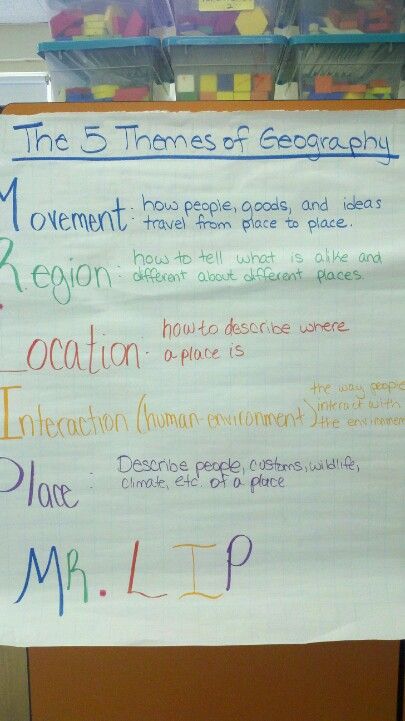 The 5 Themes of Geography
Movement: how people, goods, and ideas
travel from place to place.
Region: how to tell what is alike and
different about different places.
Location: how to describe where
a place is
Interaction (human-environment) the way people
interact with
the environment
Place: Describe people, customs, wildlife,
climate, etc. of a place
MR. LIP